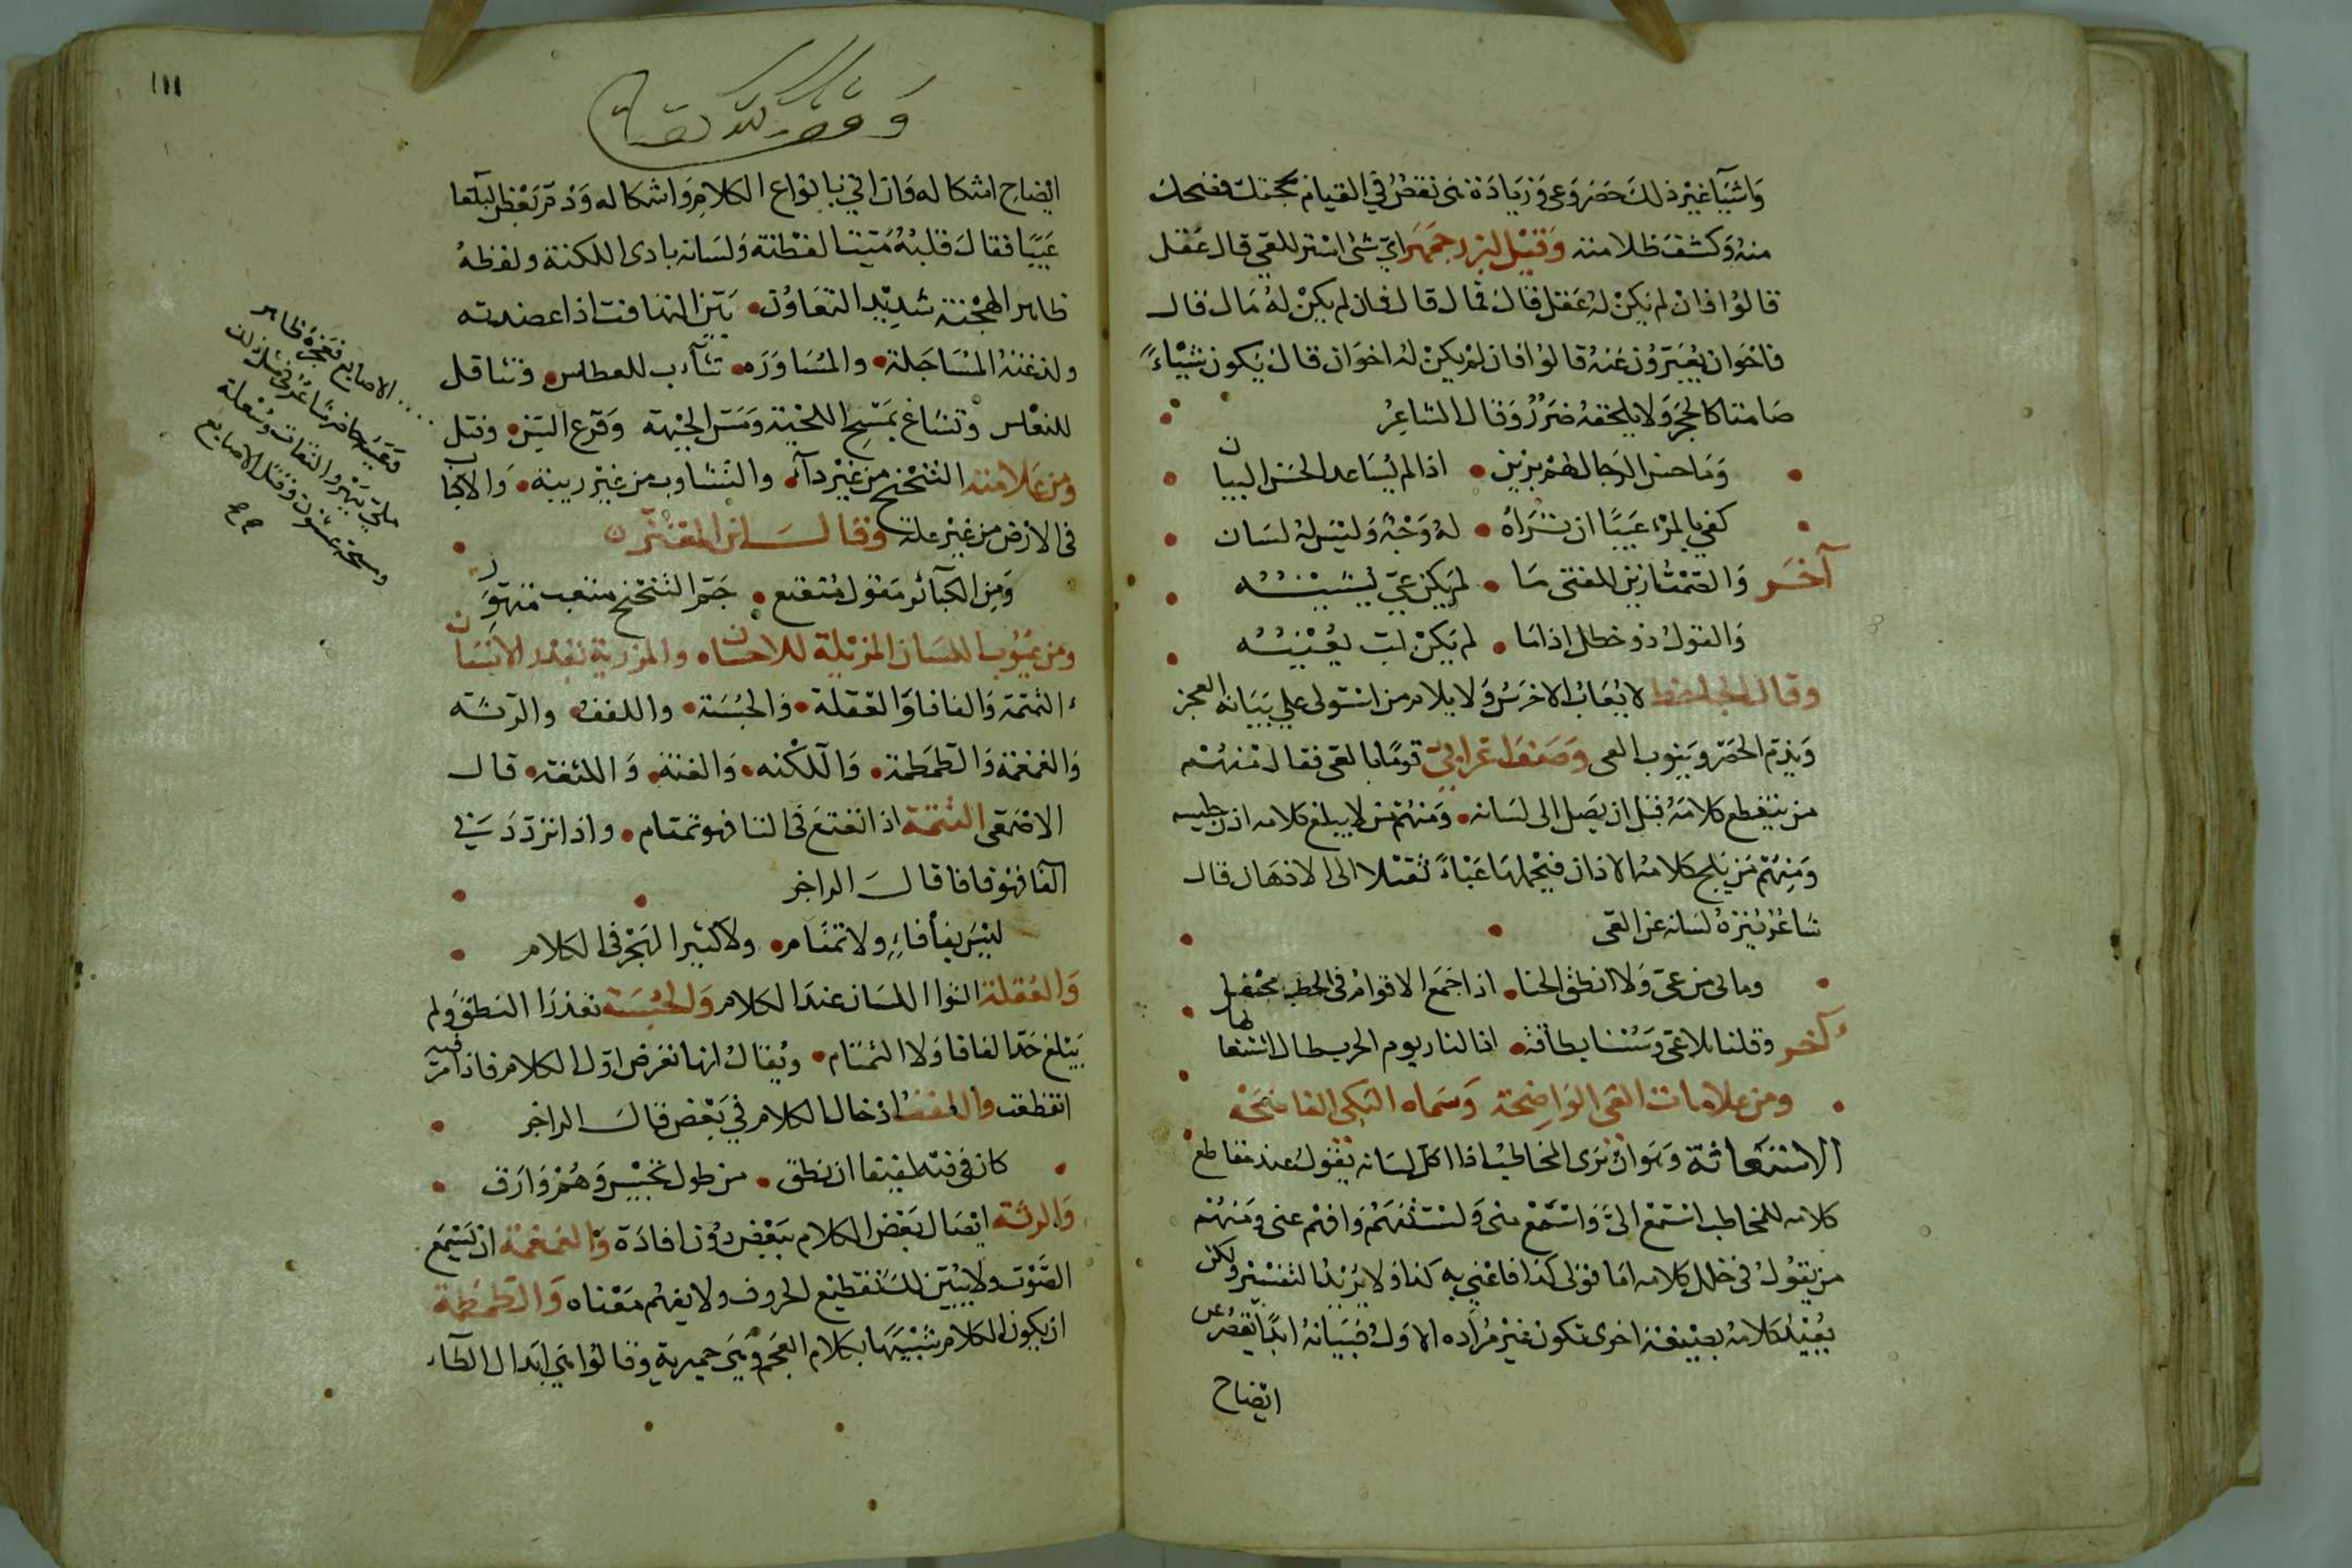 واشيآ غير ذلك حصر وعى وزيادة نى نقض في القيام بحجتك ففضحك
منه وكشف ظلامته وقيل لبزرجمهر اي شئ استر للعي قال عقل
قالوا فان لم يكن له عقل قال فمال قال فان لم يكن له مال قال
فاخوان يعبرون عنه قالوا فان لم يكن له اخوان قال يكون شيئاً
صامتا كالحجر ولا يلحقه ضرر وقال الشاعر
وما حسن الرجال لهم بزين • اذا لم يساعد الحسن البيان
كفي بالمرء عيبًا ان تراه • له وجه وليس له لسان
آخر والصمت زين للفتى ما • لم يكن عي يشينه
والقول ذو خطل اذا ما • لم يكن لب يعينه
وقال الجاحظ لا يعاب الاخرس ولا يلام من استولى على بيانه العجز
ويذم الحصر ويؤنب العى وصف اعرابي قوما بالعي فقال منهم
من ينقطع كلامه قبل ان يصل الى لسانه • ومنهم من لا يبلغ كلامه اذن جليسه
ومنهم من يلج كلامه الاذان فيحملها عبأً ثقيلا الى الاذهان قال
شاعر ينزه لسانه عن العى
وما بى من عي ولا انطق الخنا • اذا جمع الاقوام فى الخطب محفل
آخر وقلنا بلا عي وسسنا بطاقة • اذا النار يوم الحرب طال اشتعالها
ومن علامات العى الواضحة وسماه البكى الفاضحة
الاستعانة وهو ان ترى المخاطب اذا اكل لسانه يقول عند مقاطع
كلامه للمخاطب استمع الى واسمع منى ولتستفهم وافهم عنى ومنهم
من يقول فى خلل كلامه اما قولى كذا فاعني به كذا ولا يريد التفسير ولكن
يعيد كلامه بصيغة اخرى تكون غير مراده الاول فبيانه ابدًا يقصر عن
ايضاح
١١١
وقف لله تعالى
ايضاح اشكاله وان اتي بانواع الكلام واشكاله وذم بعض البلغا
عيبًا فقال قلبه ميت الفطنة ولسانه بادى اللكنة ولفظه
ظاهر الهجنة شديد التفاوت • بين التهافت اذا عضدته
ولدغته المساجلة • والمساوره • تثآءب للعطاس • وتثاقل
للنعاس وتشاغل بمسح اللحية ومس الجبهة وقرع السن • وفتل
ومن علامته التنحنح من غير دآء • والتثاوب من غير ريبة • والاكباب
فى الارض من غير علة وقال
ومن الكبائر مقول متتعتع • جم التنحنح متعب مبهور
ومن عيوب اللسان المزيلة للاحسان • والمزرية بقدر الانسان
التمتمة والفافا والعقلة • والحبسة • واللفف • والرتة
والغمغمة والطمطمة • واللكنه • والغنة • واللثغة • قال
الاصمعى التمتمة اذا تتعتع فى التا فهو تمتام • واذا تردد في
الفا فهو فافا قال الراجز
ليس بفأفاءٍ ولا تمتام • ولا كثير الهجر فى الكلام
والعقلة التوا اللسان عند الكلام والحبسة تعذر النطق ولم
يبلغ حد الفافا ولا التمتام • ويقال انها تعرض اول الكلام فاذا مر فيه
انقطعت واللفف ادخال الكلام في بعض قال الراجز
كان فى فيه لفيفا ان نطق • من طول تحبيس وهم وارق
والرتة ايصال بعض الكلام ببعض دون افادة والغمغمة ان تسمع
الصوت ولا يبين لك تقطيع الحروف ولا يفهم معناه والطمطمة
ان يكون الكلام شبيها بكلام العجم وهي حميرية وقالوا هي ابدال الطآء
الاصابع فعجزه ظاهر
شاعر فى مثل ذلك
ملئ ببهر والتفات وسعلة
ومسحة عثنون وفتل الاصابع